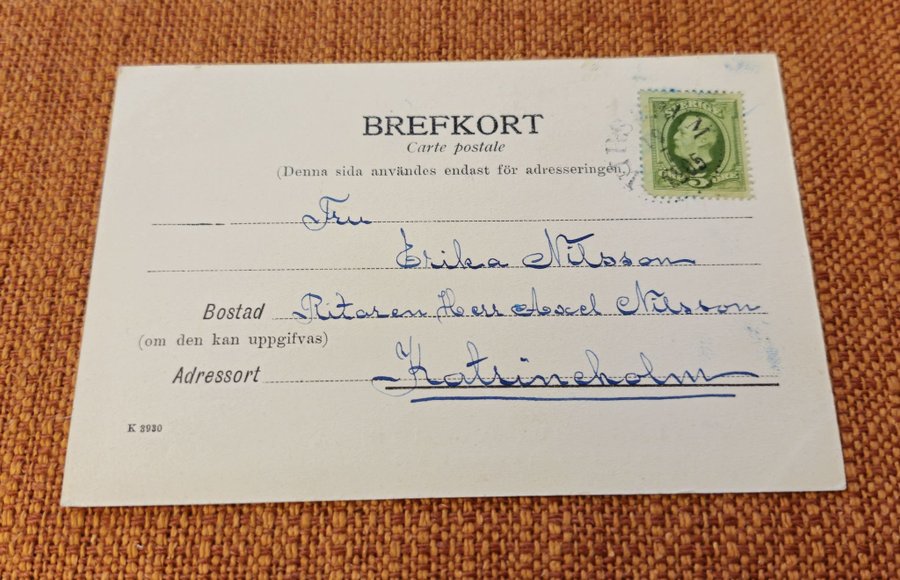 BREFKORT
Carte postale
(Denna sida användes endast för adresseringen.)
SVERIGE
5 ÖRE
Fru
Erika Nilsson
Bostad Ritaren Herr Axel Nilsson
(om den kan uppgifvas)
Adressort Katrineholm
K 3930